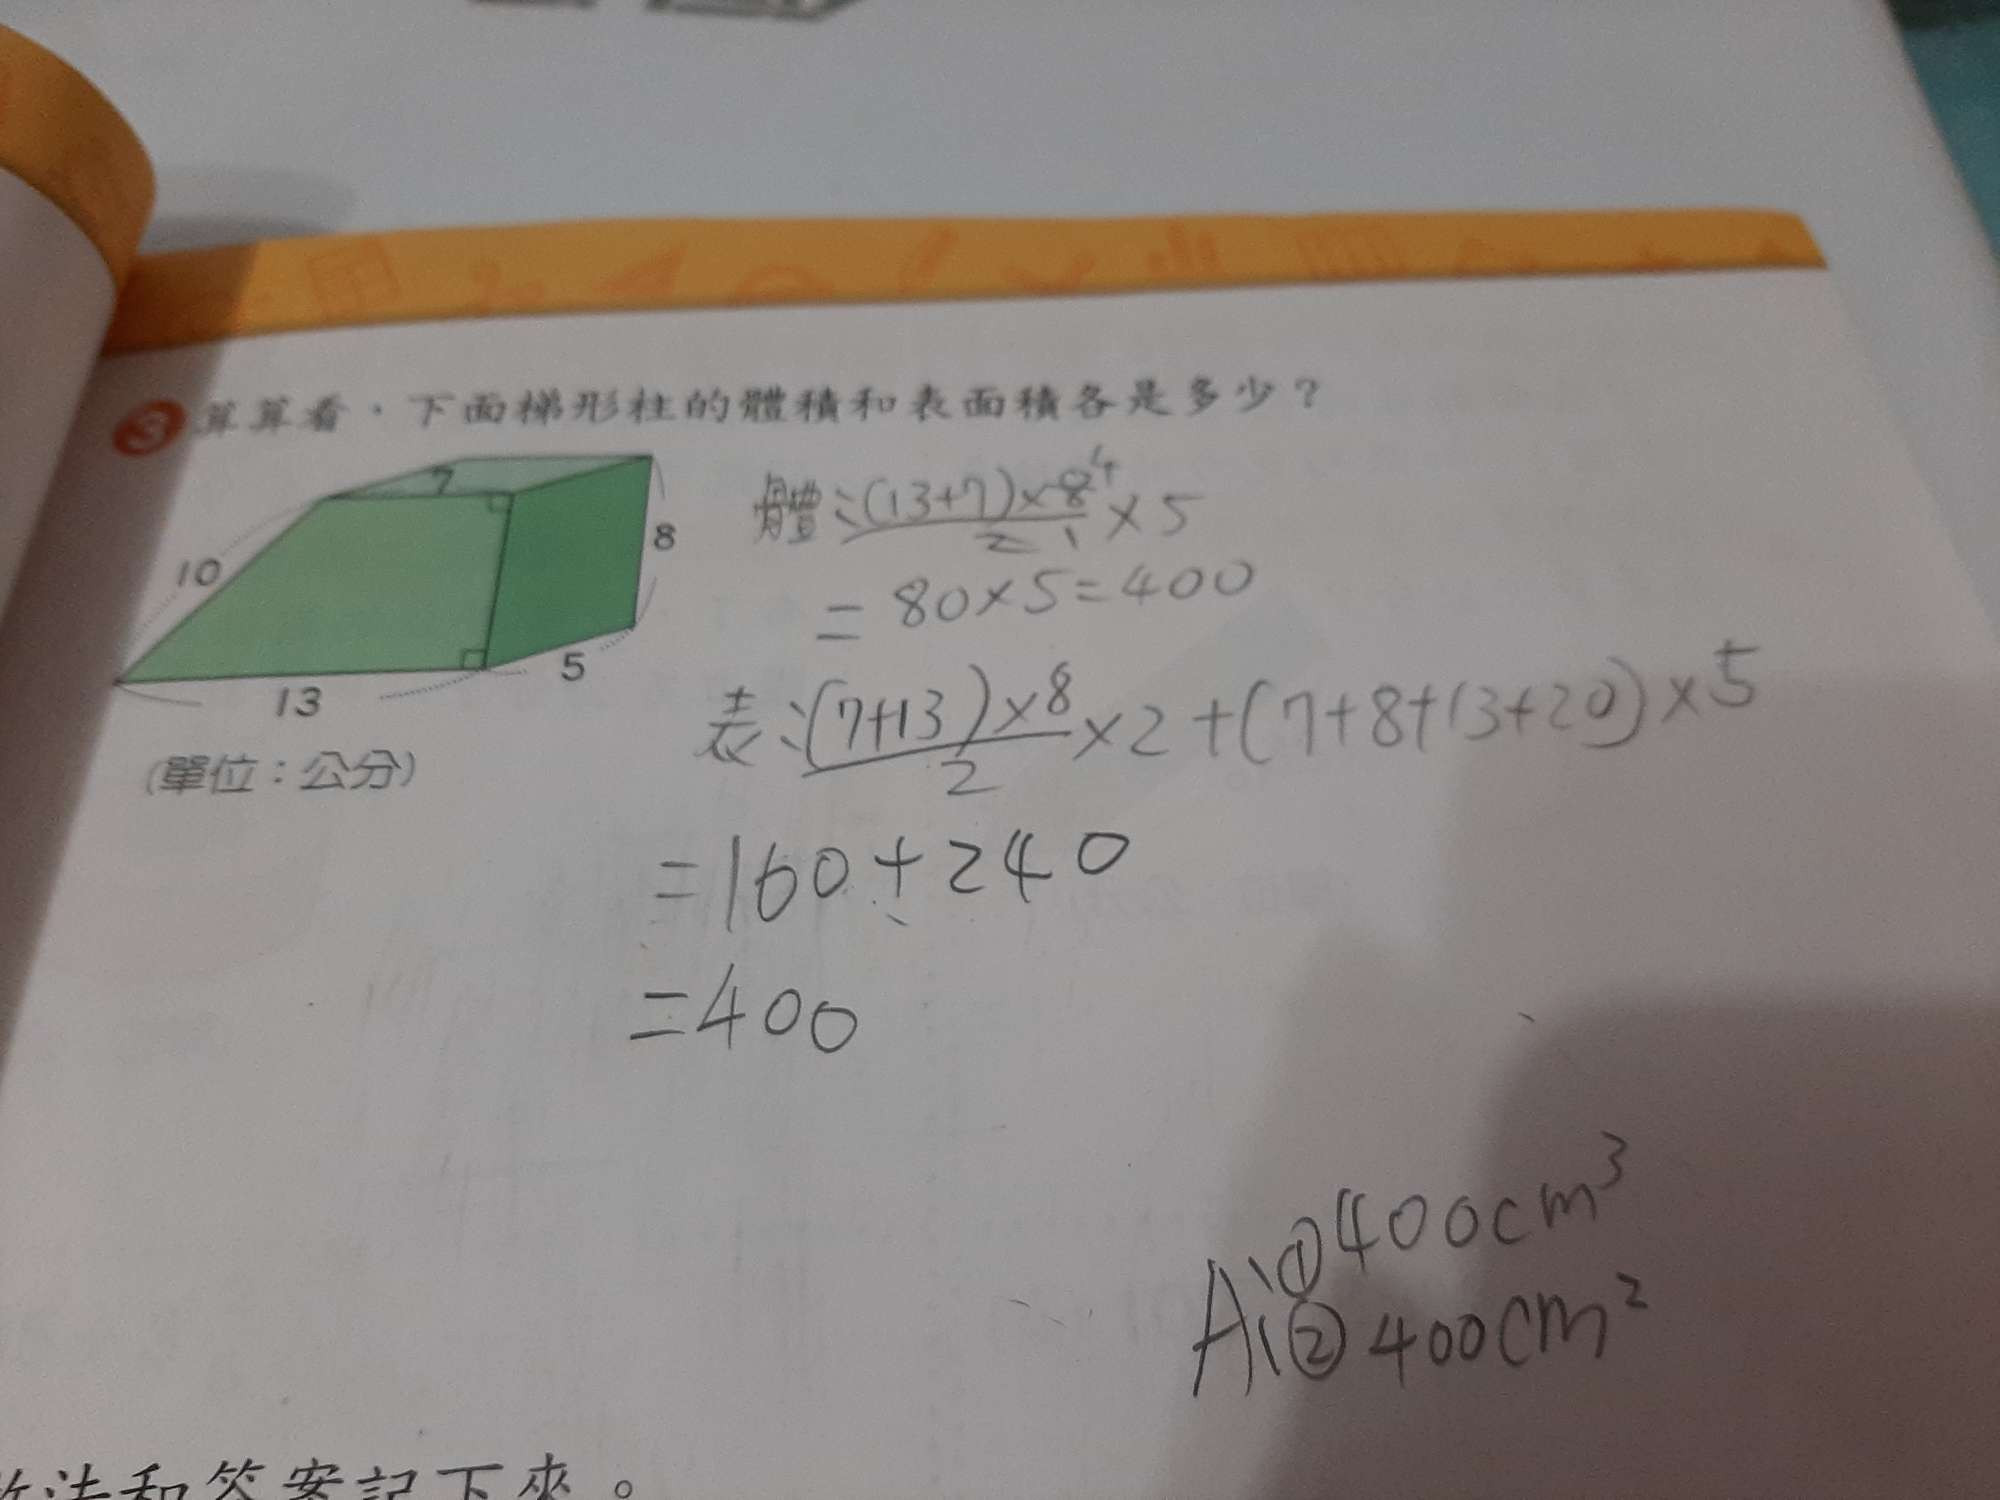 3 算算看，下面梯形柱的體積和表面積各是多少？
7
10
8
5
13
(單位：公分)
體:(13+7)×8⁴/2 1 ×5
=80×5=400
表:(7+13)×8/2×2+(7+8+13+20)×5
=160+240
=400
A:①400cm³
A:②400cm²
法和答案記下來。